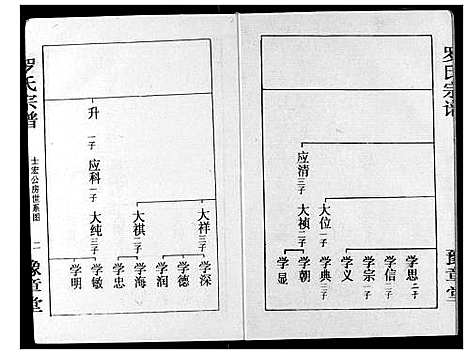 罗氏宗谱
豫章堂
应清 三子
大位 一子
大祯 二子
学思 二子
学信 二子
学宗 一子
学义
学典 三子
学朝 一子
学显
大祥 三子
大祺 二子
升 一子
应科 一子
大纯 三子
学深
学德
学润
学海
学忠
学敏
学明
罗氏宗谱
士宏公房世系图
二
豫章堂